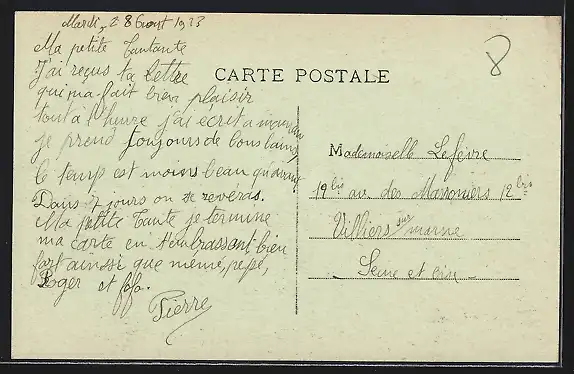 Mardi, 28 Aout 1923
Ma petite Tantante
J'ai reçus ta lettre
qui ma fait bien plaisir
tout à l'heure j'ai écrit a maman
je prend toujours de bons bains
le temp est moins beau qu'avant
Dans 7 jours on se reveras.
Ma petite Tante je termine
ma carte en t'embrassant bien
fort ainsi que mémé, pépé,
Roger et fofo.
Pierre
CARTE POSTALE
8
Mademoiselle Lefèvre
19 bis av. des Marroniers 12 bis
Villiers sur marne
Seine et Oise